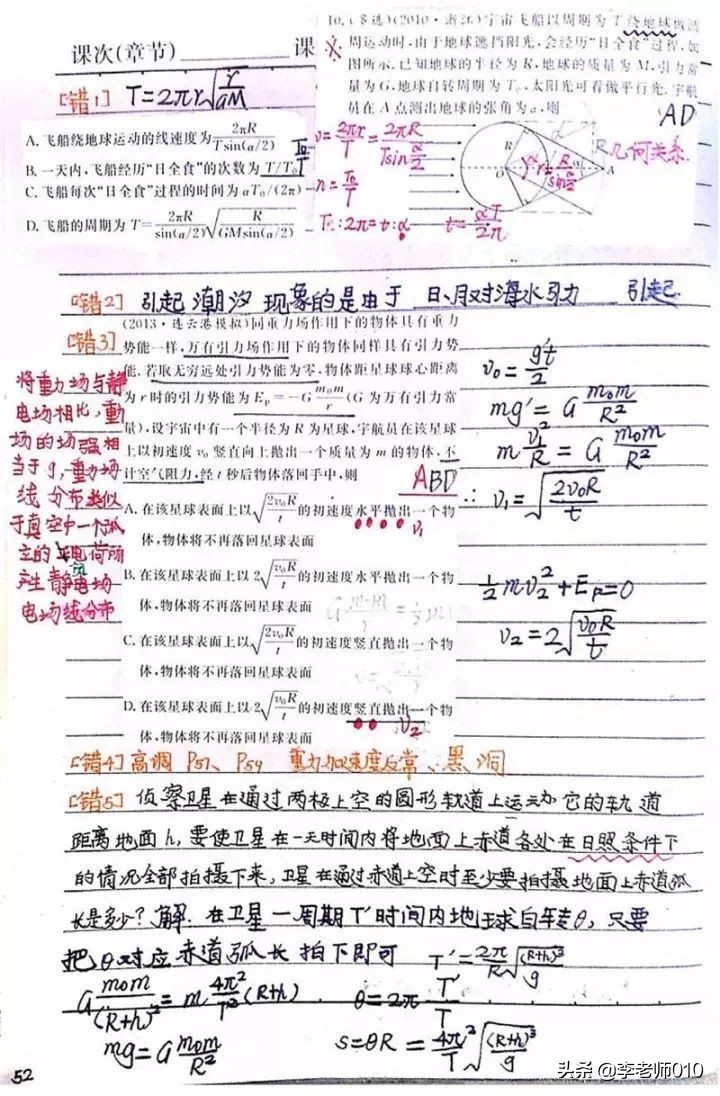 课次(章节)________ 课
10.(多选)(2010·浙江)宇宙飞船以周期为T绕地球做圆
周运动时,由于地球遮挡阳光,会经历"日全食"过程,如
图所示.已知地球的半径为R,地球的质量为M,引力常
量为G,地球自转周期为T₀,太阳光可看做平行光,宇航
员在A点测出地球的张角为α,则
AD
[错1] T=2πr√(r/GM)
A.飞船绕地球运动的线速度为2πR/(Tsin(α/2))
B.一天内,飞船经历"日全食"的次数为T/T₀
T₀/T
C.飞船每次"日全食"过程的时间为αT₀/(2π)
D.飞船的周期为T=2πR/sin(α/2)√(R/(GMsin(α/2)))
v=2πr/T=2πR/(Tsin α/2)
n=T₀/T
T:2π=t:α t=αT/2π
O R A α
r=R/(sin α/2)
几何关系
[错2] 引起潮汐现象的是由于 日、月对海水引力 引起
[错3] (2013·连云港模拟)同重力场作用下的物体具有重力
势能一样,万有引力场作用下的物体同样具有引力势
能.若取无穷远处引力势能为零,物体距星球球心距离
为r时的引力势能为Eₚ=-G m₀m/r(G为万有引力常
量),设宇宙中有一个半径为R为星球,宇航员在该星球
上以初速度v₀竖直向上抛出一个质量为m的物体,不
计空气阻力,经t秒后物体落回手中,则
ABD
A.在该星球表面上以√(2v₀R/t)的初速度水平抛出一个物
体,物体将不再落回星球表面
v₁
B.在该星球表面上以2√(v₀R/t)的初速度水平抛出一个物
体,物体将不再落回星球表面
C.在该星球表面上以√(2v₀R/t)的初速度竖直抛出一个物
体,物体将不再落回星球表面
D.在该星球表面上以2√(v₀R/t)的初速度竖直抛出一个物
体,物体将不再落回星球表面
v₂
将重力场与静
电场相比,重力
场的场强相
当于g,重力场
线分布类似
于真空中一个孤
立的负电荷所
产生静电场
电场线分布
v₀=g't/2
mg'=G m₀m/R²
m v₁²/R=G m₀m/R²
∴v₁=√(2v₀R/t)
½mv₂²+Eₚ=0
v₂=2√(v₀R/t)
[错4] 高调 P57、P59 重力加速度反常、黑洞
[错5] 侦察卫星在通过两极上空的圆形轨道上运动它的轨道
距离地面h,要使卫星在一天时间内将地面上赤道各处在日照条件下
的情况全部拍摄下来,卫星在通过赤道上空时至少要拍摄地面上赤道弧
长是多少?解.在卫星一周期T'时间内地球自转θ,只要
把θ对应赤道弧长拍下即可 T'=2π/R√((R+h)³/g)
G m₀m/(R+h)²=m 4π²/T'²(R+h) θ=2π T'/T
mg=G m₀m/R² s=θR=4π²/T√((R+h)³/g)
52
头条@李老师010